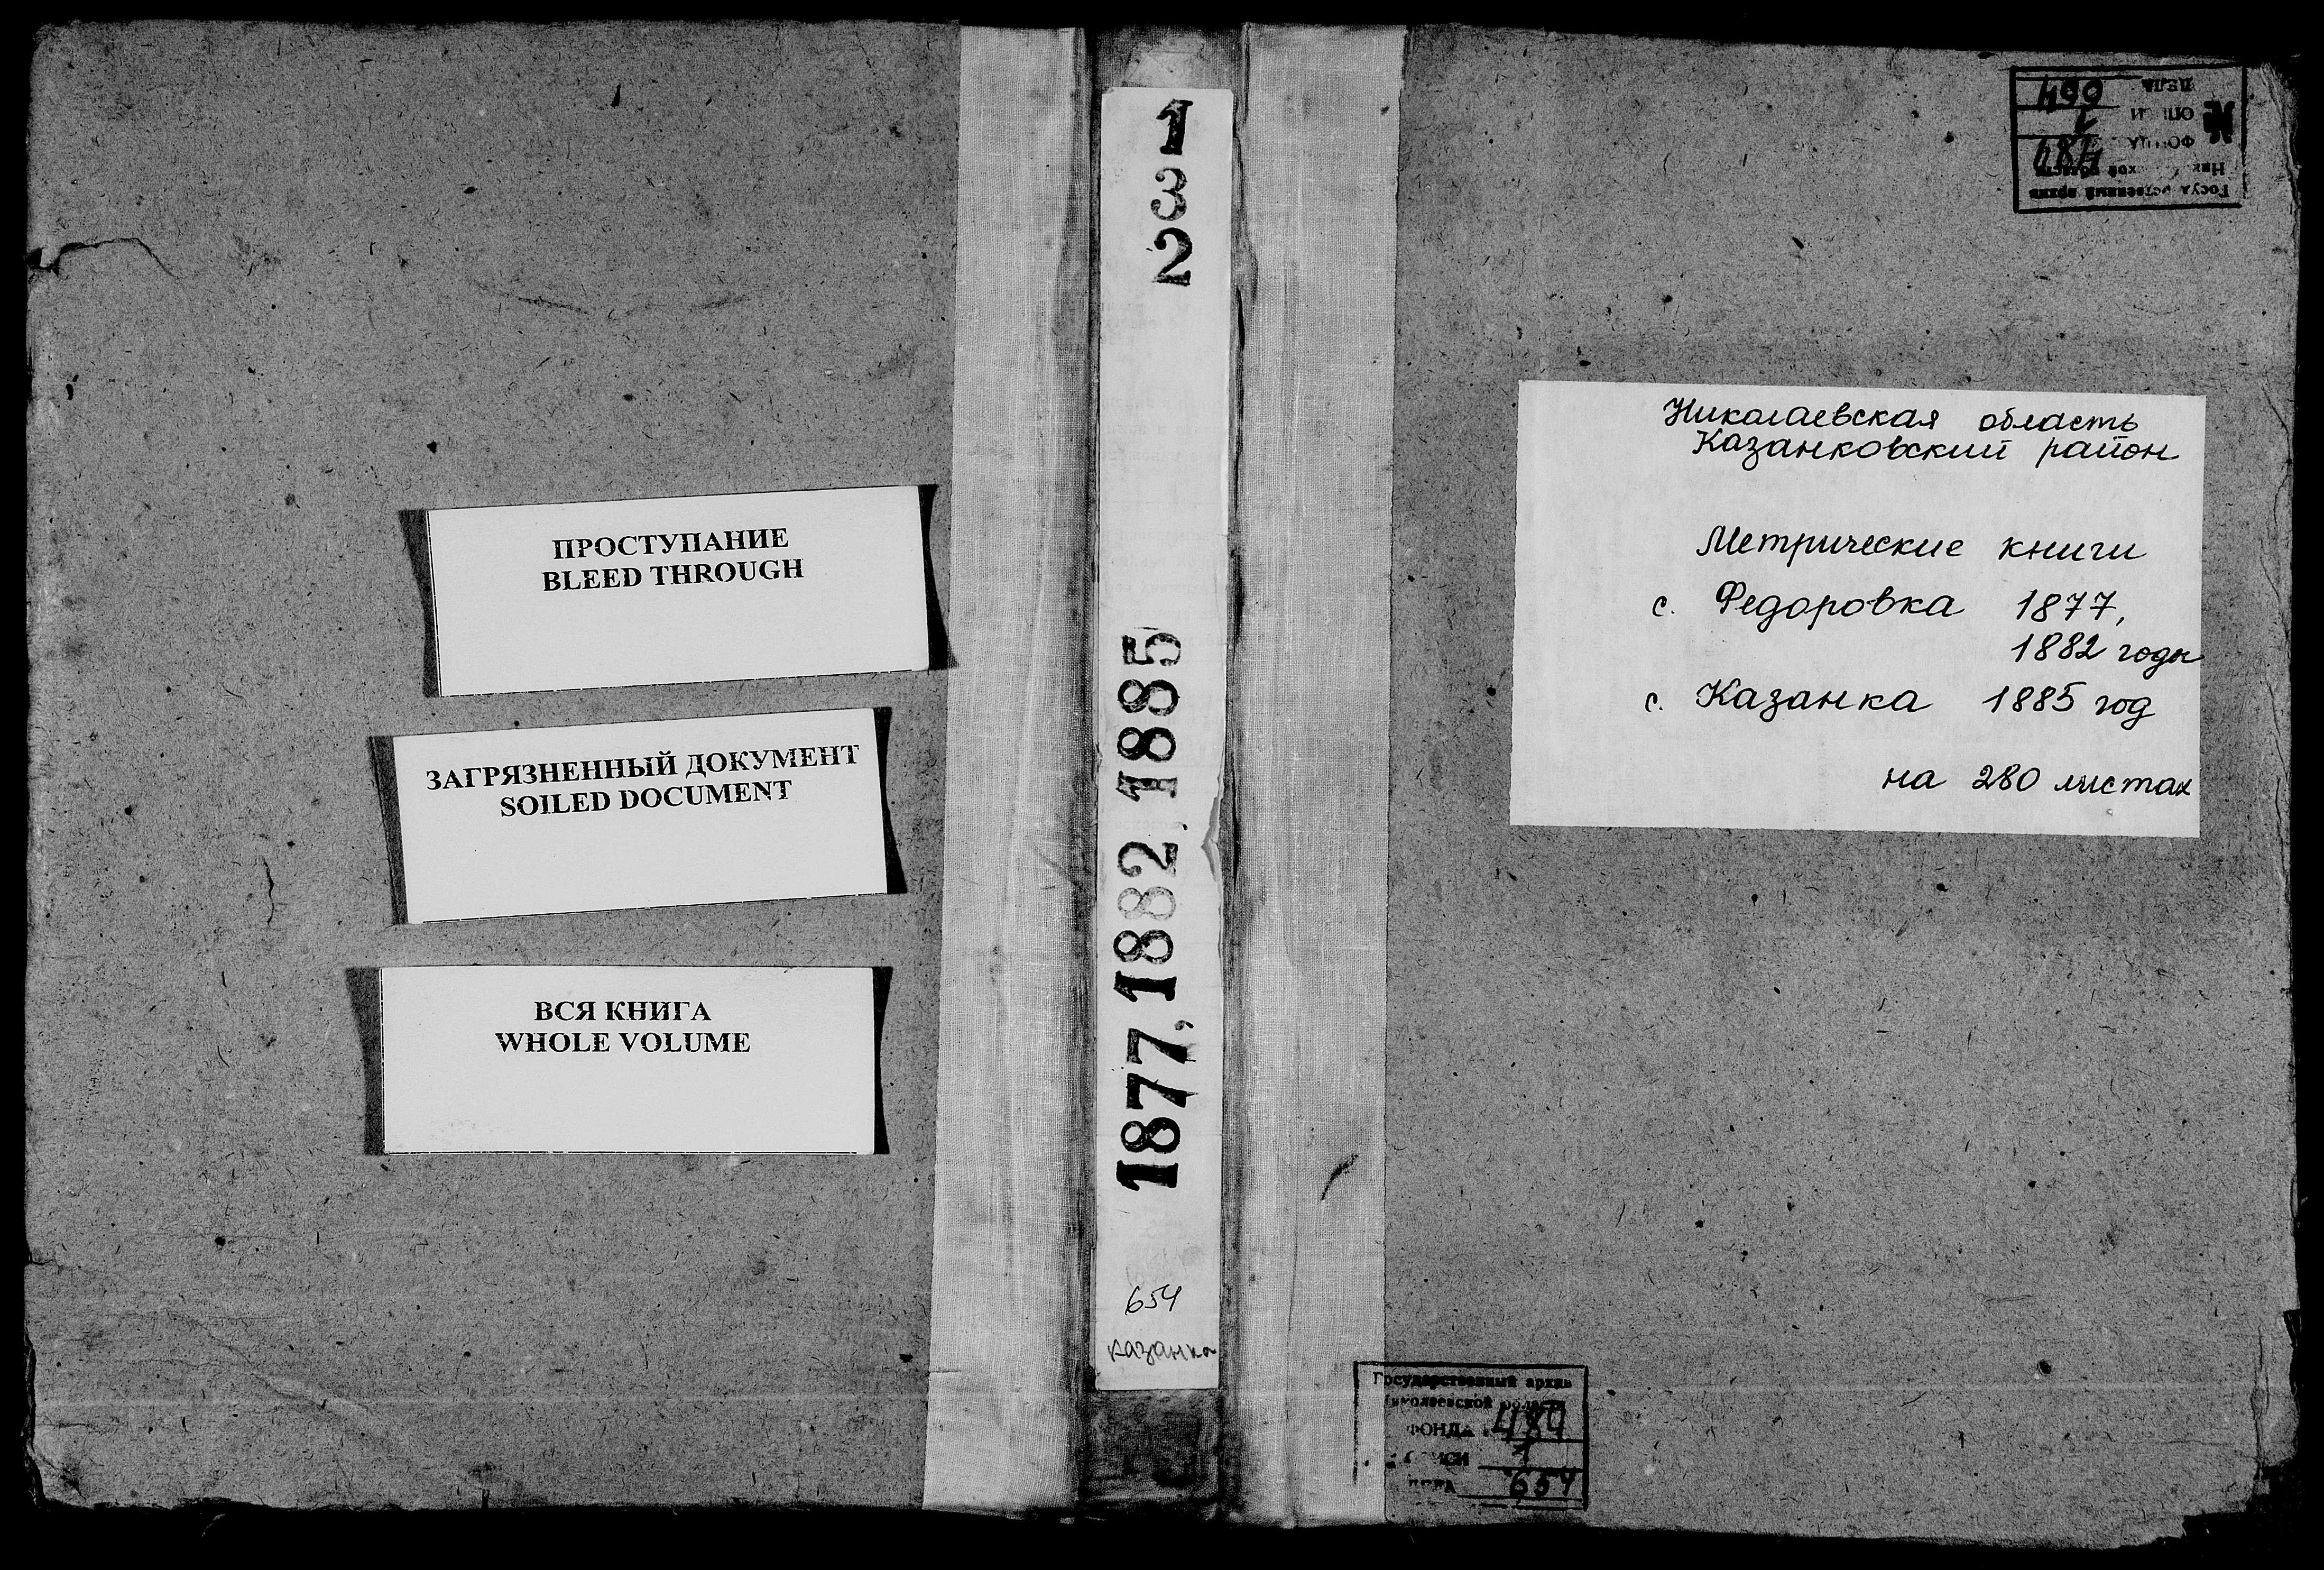 ПРОСТУПАНИЕ
BLEED THROUGH
ЗАГРЯЗНЕННЫЙ ДОКУМЕНТ
SOILED DOCUMENT
ВСЯ КНИГА
WHOLE VOLUME
1
3
2
1877, 1882, 1885
654
Казанка
Николаевская область
Казанковский район
Метрические книги
с. Федоровка 1877,
1882 годы
с. Казанка 1885 год
на 280 листах
Государственный архив
Николаевской области
ФОНДА 484
1
654
Государственный архив
области
ФОНДА 484
ДЕЛА